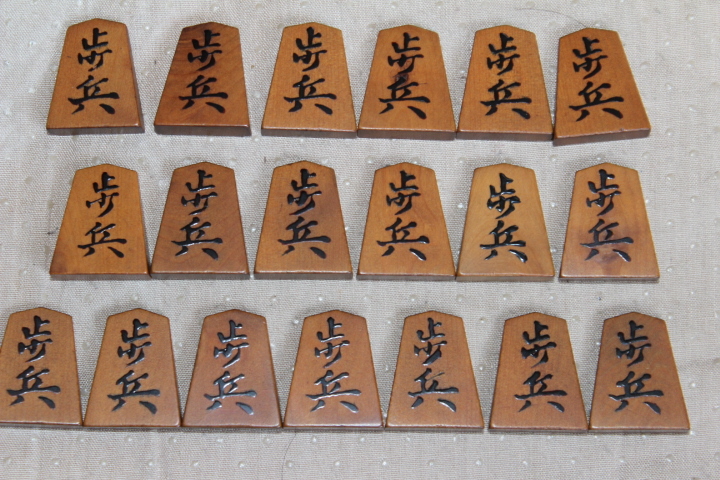 歩兵 歩兵 歩兵 歩兵 歩兵 歩兵
歩兵 歩兵 歩兵 歩兵 歩兵 歩兵
歩兵 歩兵 歩兵 歩兵 歩兵 歩兵 歩兵